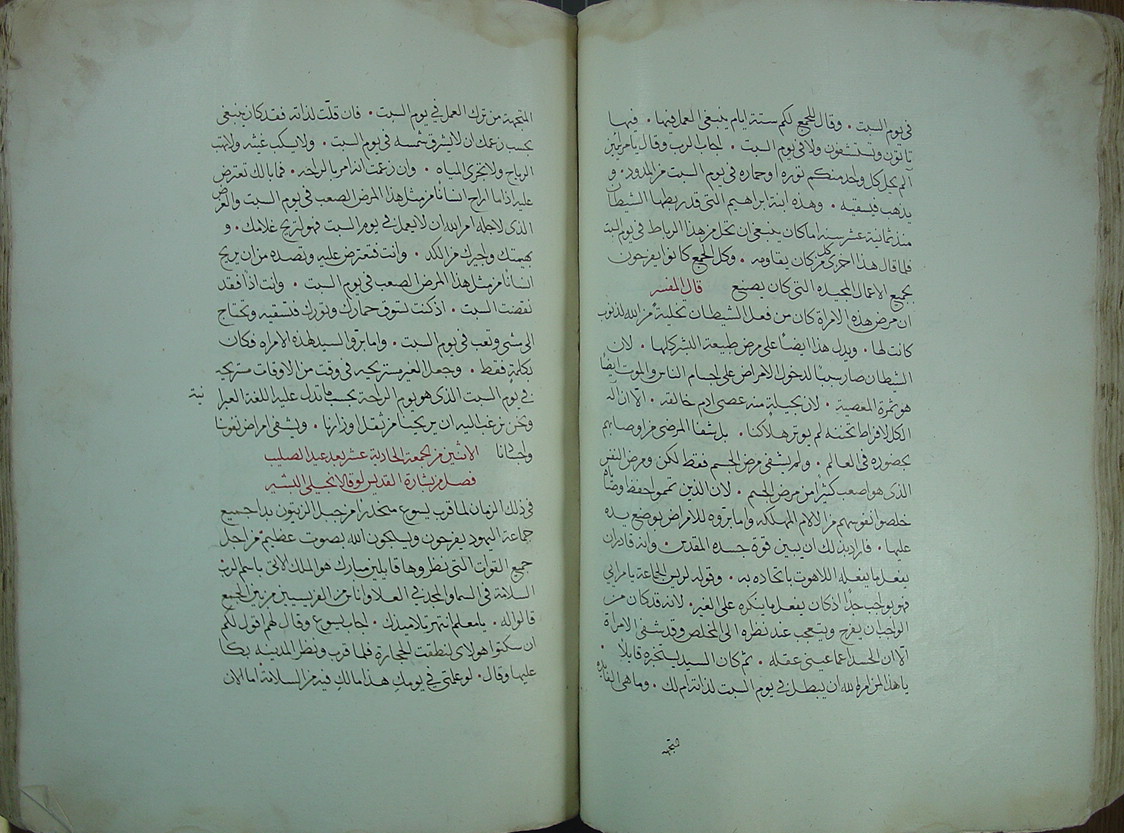 في يوم السبت • وقال للجمع لكم ستة ايام ينبغي العمل فيها • فيها
تاتون وتستشفون ولا في يوم السبت • اجاب الرب وقال يا مرايين
الم يحل كل واحد منكم ثوره او حماره في يوم السبت من المدود • و
يذهب فيسقيه • وهذه ابنة ابراهيم التي قد ربطها الشيطان
منذ ثمانية عشر سنه اما كان ينبغي ان تحل من هذا الرباط في يوم السبت
فلما قال هذا اخزى كل من كان يقاومه • وكل الجمع كانوا يفرحون
بجميع الاعمال المجيده التي كان يصنع قال المفسر
ان مرض هذه الامراة كان من فعل الشيطان تخلية من الله لذنوب
كانت لها • ويدل هذا ايضا على مرض طبيعة البشر كلها • لان
الشيطان صار سببا لدخول الامراض على اجسام الناس والموت ايضا
هو ثمرة المعصية • لان بحيلة منه عصى ادم خالقه • الا ان اله
الكل لافراط تحننه لم يوثر هلاكنا • بل شفا المرضى من اوصابهم
بحضوره في العالم • ولم يشفى مرض الجسم فقط لكن ومرض النفس
الذي هو اصعب كثيرا من مرض الجسم • لان الذين تمموا حفظ وصاياه
خلصوا نفوسهم من الالام المهلكه واما بروه للامراض بوضع يده
عليها • فاراد بذلك ان يبين قوة جسده المقدس • وانه قادر ان
يفعل ما يفعله اللاهوت باتحاده به • وقوله لريس الجماعة يا مرايي
فهو بواجب جدا اذ كان يفعل ما ينكره على الغير • لانه قد كان من
الواجب ان يفرح ويتعجب عند نظره الى المخلص وقد شفى الامراة
الا ان الحسد اعما عيني عقله • ثم كان السيد ينتجزه قايلا
يا هذا المرامره لله ان يبطل في يوم السبت لذاته ام لك • وما هي الفايده
المتجهة من ترك العمل في يوم السبت • فان قلت لذاته فقد كان ينبغي
بحسب زعمك ان لا يشرق شمسه في يوم السبت • ولا يسكب غيثه ولا تهب
الرياح ولا تجري المياه • وان زعمت انه امر بالراحه • فما بالك تعترض
عليه اذا ما اراح انسانا من مثل هذا المرض الصعب في يوم السبت والغرض
الذي لاجله امر الله ان لا يعمل في يوم السبت فهو لتريح غلامك • و
بهيمتك واجيرك من الكد • وانت فتعترض عليه وتصده من ان يريح
انسانا من مثل هذا المرض الصعب في يوم السبت • وانت اذا فقد
نقضت السبت • اذ كنت تسوق حمارك وثورك فتسقيه وتحتاج
الى مشي وتعب في يوم السبت • واما برو السيد لهذه الامراه فكان
بكلمة فقط • وجعل الغير مستريحه في وقت من الاوقات مستريحه
في يوم السبت الذي هو يوم الراحة بحسب ما تدل عليه اللغة العبرا
نية
ونحن نرغب اليه ان يريحنا من ثقل اوزارنا • ويشفي امراض نفوسنا
واجسامنا الاثنين من الجمعة الحادية عشر بعد عيد الصليب
فصل من بشارة القديس لوقا الانجيلي البشير
في ذلك الزمان لما قرب يسوع منحدرا من جبل الزيتون بدا جميع
جماعة اليهود يفرحون ويسبحون الله بصوت عظيم من اجل
جميع القوات التي نظروها قايلين مبارك هو الملك الاتي باسم الرب
السلامة في السما والمجد في العلا واناس من الفريسيين من بين الجمع
قالوا له • يا معلم انتهر تلاميذك • اجاب يسوع وقال لهم اقول لكم
ان سكتوا هولاى لنطقت الحجارة فلما قرب ونظر المدينه بكا
عليها وقال • لو علمتي في يومك هذا ما لك فيه من السلامة اما الان